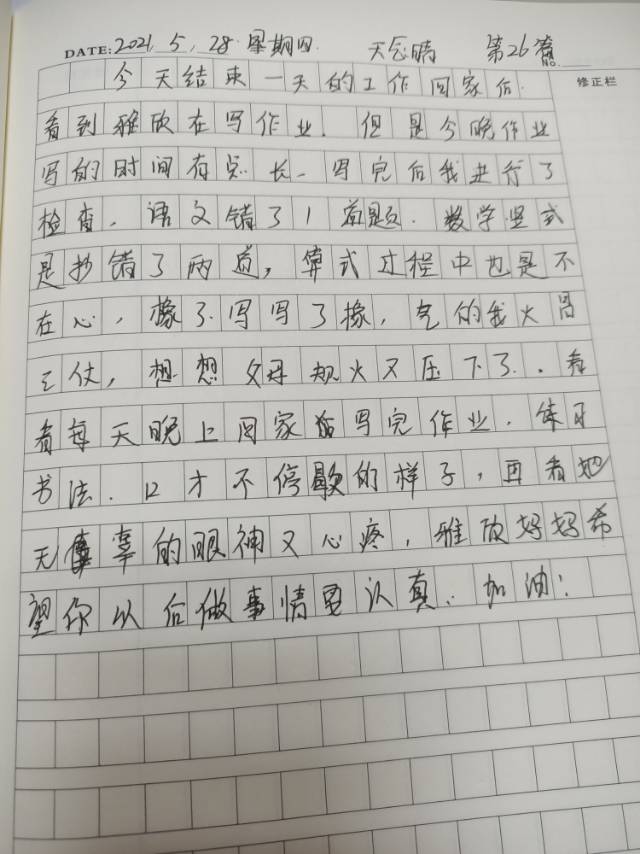 DATE: 2021.5.28 星期四 天气晴 第26篇
No.
修正栏
今天结束一天的工作回家后
看到雅欣在写作业.但是今晚作业
写的时间有点长、写完后我进行了
检查.语文错了1道题.数学竖式
是抄错了两道,算式过程中也是不
在心,橡了写写了橡,气的我火冒
三仗,想想父母规火又压下了.看
看每天晚上回家写完作业.练习
书法.口才不停歇的样子,再看她
无辜的眼神又心疼,雅欣妈妈希
望你以后做事情更认真.加油!